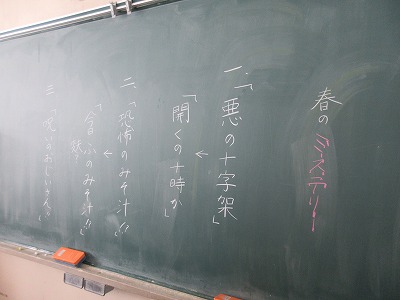 春のミステリー
一、「悪の十字架」
←
「開くの十時か」
二、「恐怖のみそ汁!!」
←
「今日ふのみそ汁!!」
麩?
三、「呪いのおじいさん」